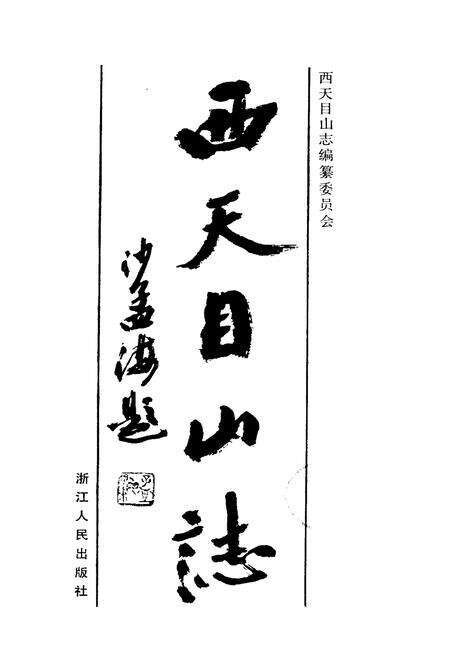 西天目山志编纂委员会
西天目山誌
沙孟海题
浙江人民出版社